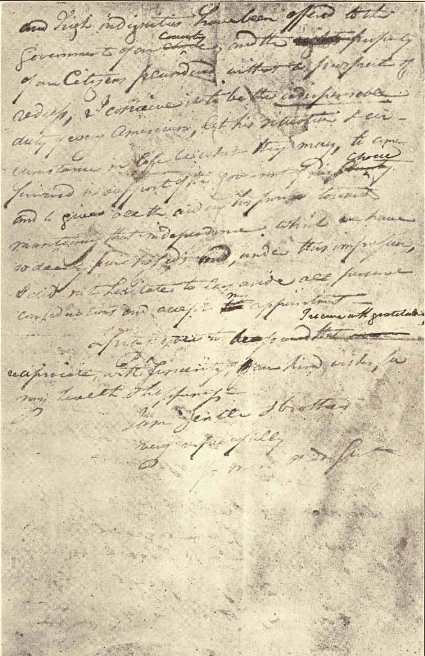 and high indignities have been offered to the
Government of our Country and the property
of our Citizens plundered without a prospect of
redress, I conceive it to be the indispensable
duty of every American, let his situation & cir-
cumstances in life be what they may, to come
forward in support of the governmt of his choice
and to give all the aid in his power toward
maintaining that independence which we have
so dearly purchased; and, under this impression,
I did not hesitate to lay aside all personal
considerations and accept my appointment
to be assured that I receive with gratitude,
reciprocate with sincerity your kind wishes for
my health & happiness.
I am Gentln & brothers
very respectfully